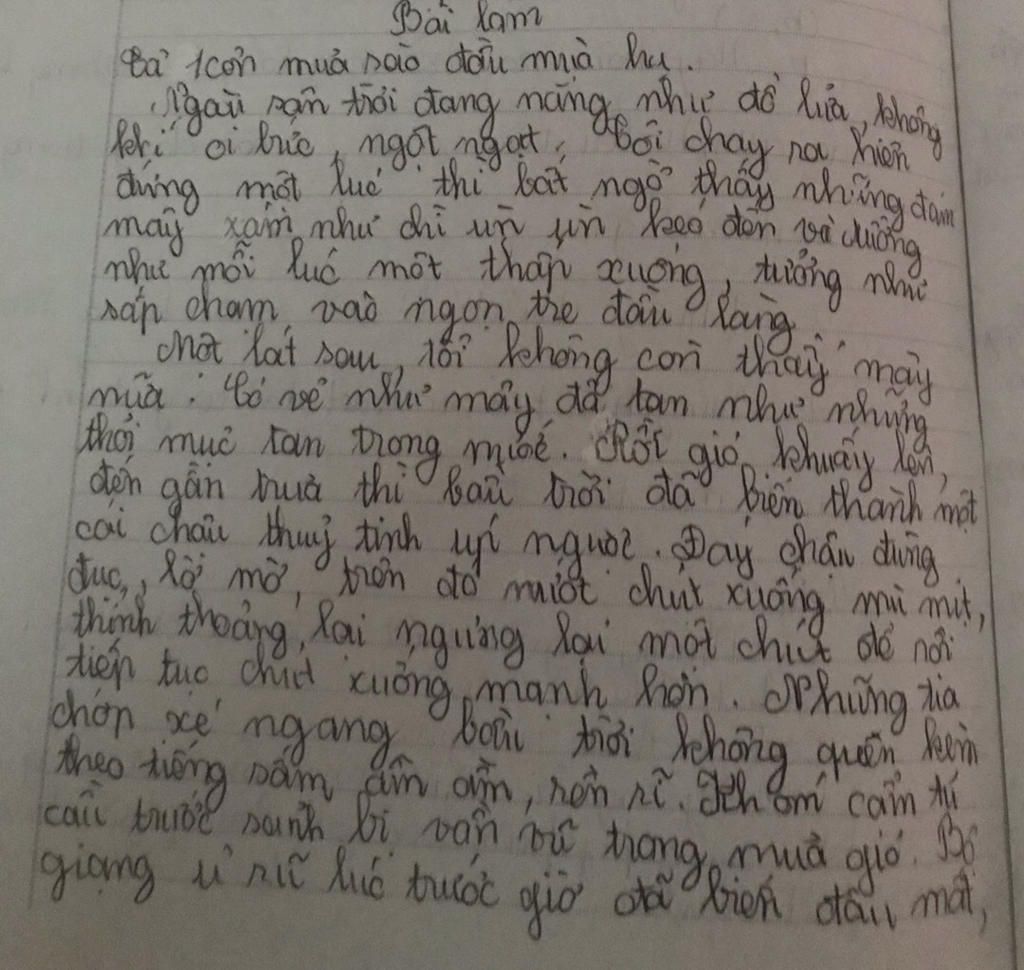 Bài làm
Tả 1 cơn mưa rào đầu mùa hạ.
Ngoài sân trời đang nắng như đổ lửa, không
khí oi bức, ngột ngạt. Tôi chạy ra hiên
đứng một lúc thì bất ngờ thấy những đám
mây xám như chì ùn ùn kéo đến và dường
như mỗi lúc một thấp xuống, tưởng như
sắp chạm vào ngọn tre đầu làng.
Một lát sau, tôi không còn thấy mây
nữa. Có vẻ như mây đã tan như những
thỏi mực tan trong nước. Rồi gió khuấy lên,
đến gần trưa thì bầu trời đã biến thành một
cái chậu thuỷ tinh úp ngược. Đáy chậu đựng
đục, lờ mờ, trên đó nước chút xuống mù mịt,
thỉnh thoảng lại ngưng lại một chút để rồi
tiếp tục chút xuống mạnh hơn. Những tia
chớp xé ngang bầu trời không quên kèm
theo tiếng sấm ầm ầm, rền rĩ. Khóm cẩm tú
cầu trước sânh bị vần vũ trong mưa gió. Bộ
giạng ủ rũ lúc trước giờ đã biến đâu mất,